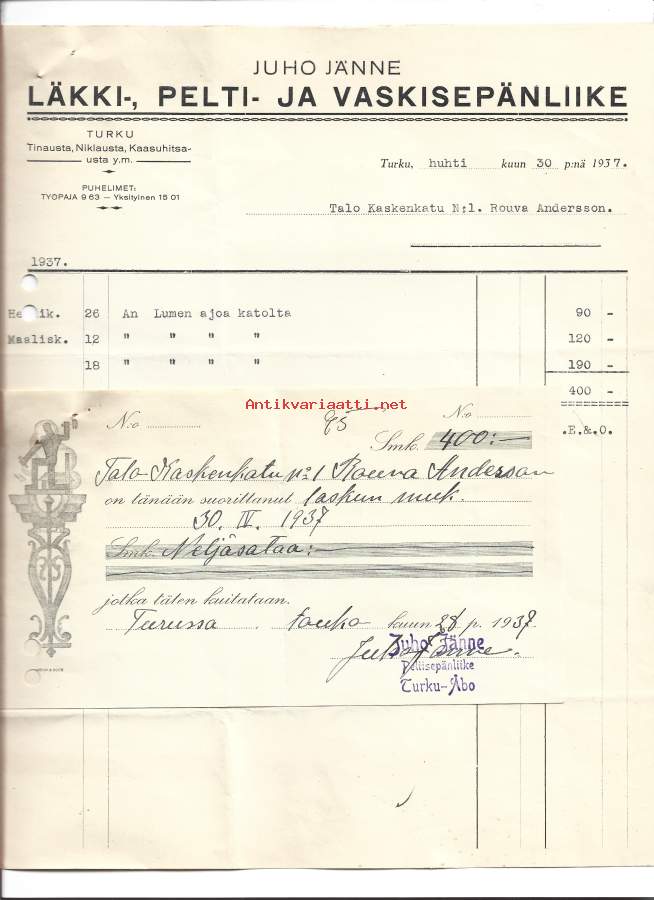 JUHO JÄNNE
LÄKKI-, PELTI- JA VASKISEPÄNLIIKE
TURKU
Tinausta, Niklausta, Kaasuhitsa-
usta y.m.
PUHELIMET:
TYÖPAJA 9 63 — Yksityinen 15 01
Turku, huhti kuun 30 p:nä 1937.
Talo Kaskenkatu N:1. Rouva Andersson.
1937.
26 An Lumen ajoa katolta 90 -
Maalisk. 12 " " " " 120 -
18 " " " " 190 -
400 -
Antikvariaatti.net
.E.&.O.
N:o 95 N:o
Smk. 400:-
Talo Kaskenkatu n:1 Rouva Andersson
on tänään suorittanut laskun muk.
30. IV. 1937
Smk. Neljäsataa:-
jotka täten kuitataan.
Turussa . touko kuun 28 p. 1937
Juho Jänne.
Juho Jänne
Peltisepänliike
Turku-Åbo